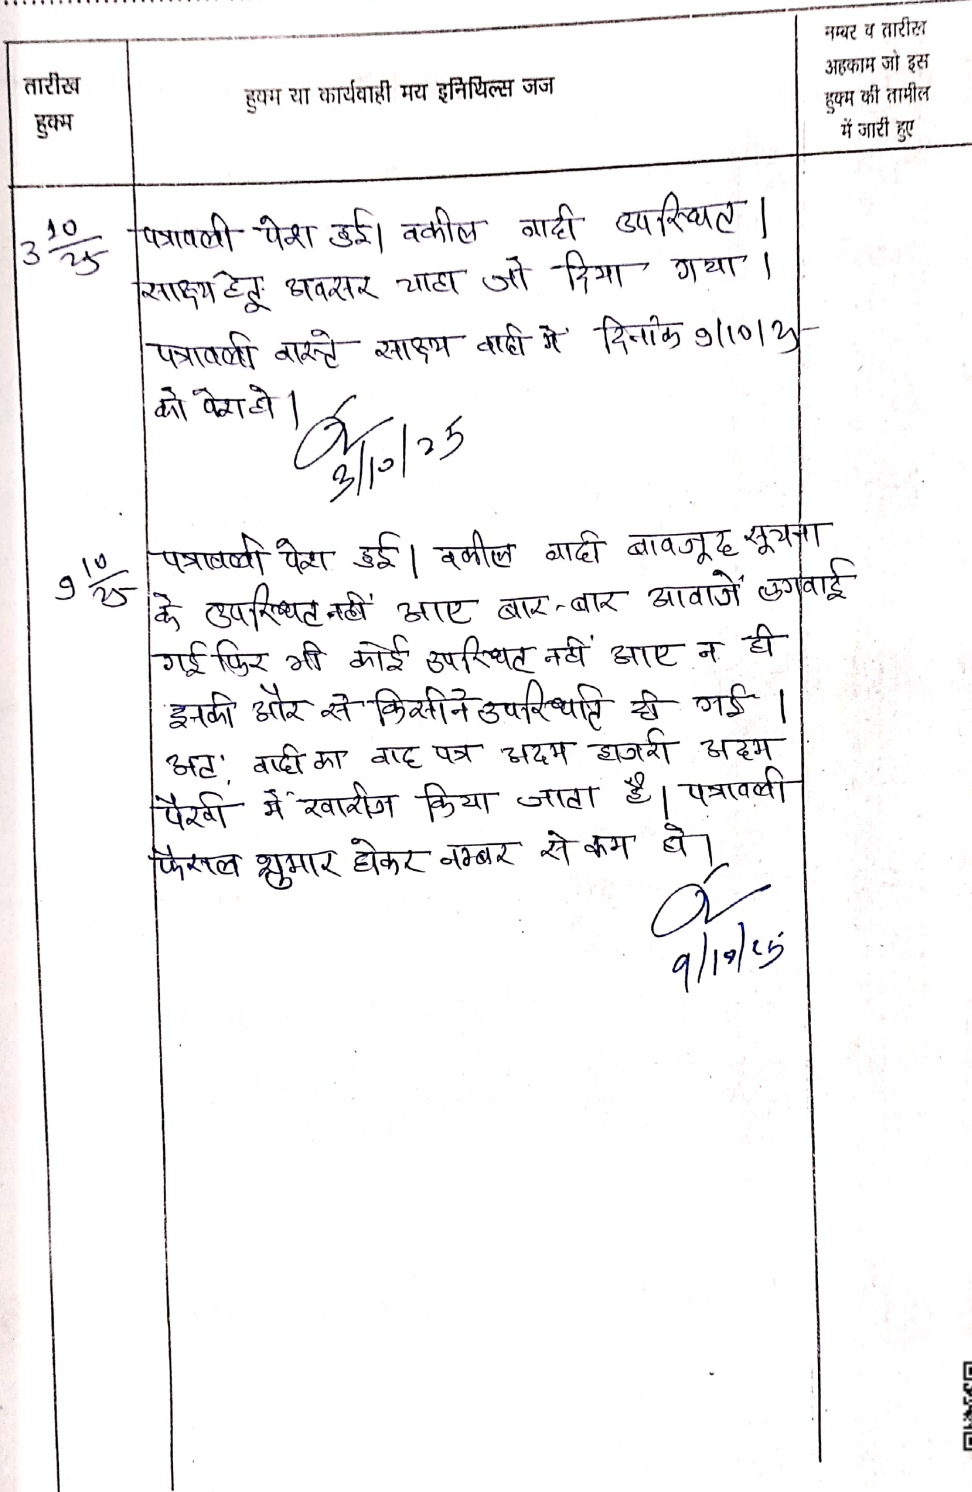 तारीख
हुक्म
हुक्म या कार्यवाही मय इनिथिल्स जज
नम्बर व तारीख
अहकाम जो इस
हुक्म की तामील
में जारी हुए
3 10/25
पत्रावली पेश हुई। वकील वादी उपस्थित।
साक्ष्य हेतु अवसर चाहा जो दिया गया।
पत्रावली वास्ते साक्ष्य वादी में दिनांक 9/10/25
को पेश हो।
3/10/25
9 10/25
पत्रावली पेश हुई। वकील वादी बावजूद सूचना
के उपस्थित नहीं आए बार-बार आवाजें लगवाई
गई फिर भी कोई उपस्थित नहीं आए न ही
इनकी और से किसीने उपस्थिति दी गई।
अतः वादी का वाद पत्र अदम हाजरी अदम
पैरवी में खारीज किया जाता है। पत्रावली
फैसल शुमार होकर नम्बर से कम हो।
9/10/25